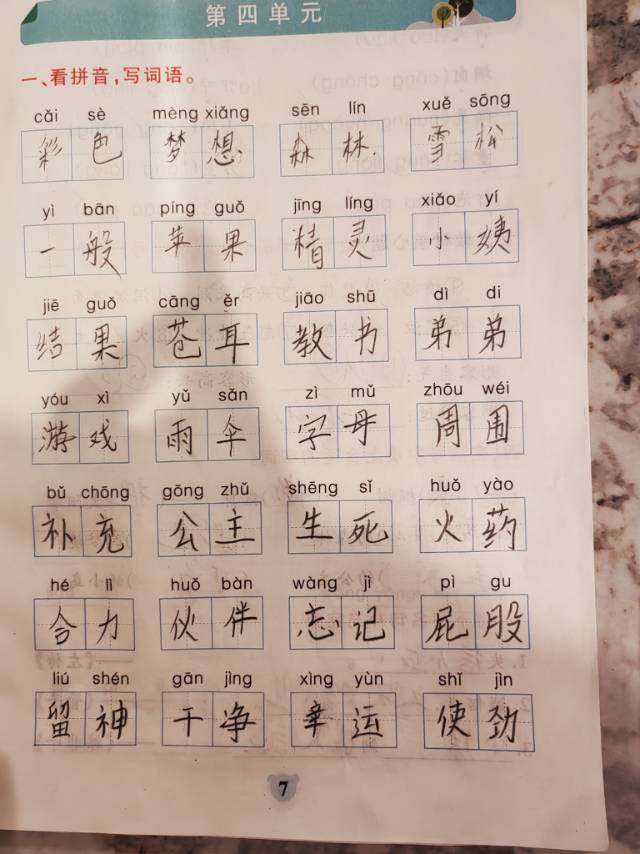 第四单元
一、看拼音,写词语。
cǎi sè mèng xiǎng sēn lín xuě sōng
彩色 梦想 森林 雪松
yì bān píng guǒ jīng líng xiǎo yí
一般 苹果 精灵 小姨
jiē guǒ cāng ěr jiāo shū dì di
结果 苍耳 教书 弟弟
yóu xì yǔ sǎn zì mǔ zhōu wéi
游戏 雨伞 字母 周围
bǔ chōng gōng zhǔ shēng sǐ huǒ yào
补充 公主 生死 火药
hé lì huǒ bàn wàng jì pì gu
合力 伙伴 忘记 屁股
liú shén gān jìng xìng yùn shǐ jìn
留神 干净 幸运 使劲
7